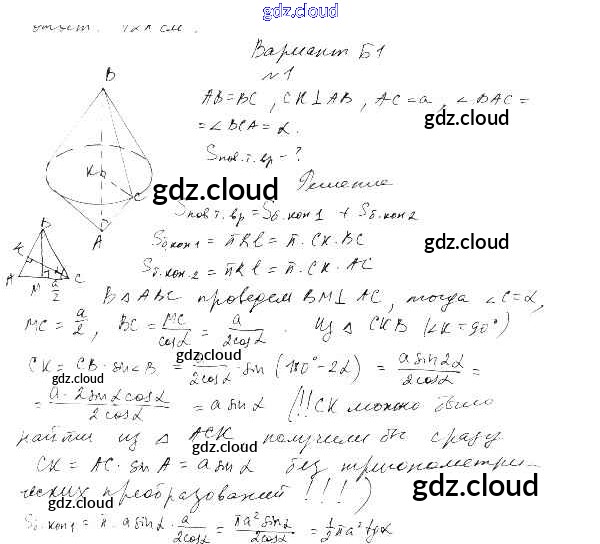 gdz.cloud
ответ: 12π см.
Вариант Б1
№1
AB=BC, CK⊥AB, AC=a, ∠BAC=
=∠BCA=α.
gdz.cloud
Sпов.т.вр - ?
Решение
gdz.cloud
Sпов.т.вр = Sб.кон1 + Sб.кон2
Sб.кон1 = πRl = π·CK·BC
gdz.cloud
Sб.кон.2 = πRl = π·CK·AC
B
K
C
D
A
B
K
A
M
a/2
C
В ΔABC проведем BM⊥AC, тогда ∠C=α,
MC = a/2, BC = MC/cosα = a/2cosα. Из ΔCKB (∠K=90°)
gdz.cloud
CK = CB·sin∠B = a/2cosα · sin(180°-2α) = a sin2α/2cosα =
gdz.cloud
= a·2sinα cosα/2cosα = a sinα (!!CK можно было
gdz.cloud
найти из ΔACK, получили бы сразу
gdz.cloud
CK = AC·sinA = a sinα без тригонометри-
ческих преобразований!!!)
gdz.cloud
Sб.кон1 = π·a sinα·a/2cosα = πa² sinα/2cosα = 1/2 πa² tgα
gdz.cloud